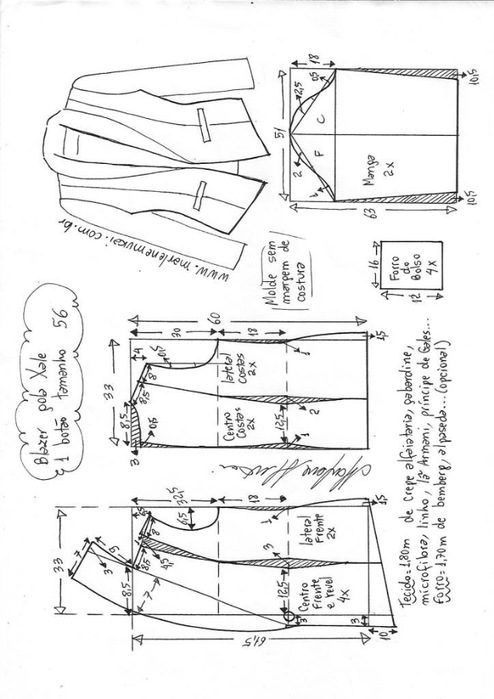 Blazer gola Xale
1 botão tamanho 56
www.marlenemukai.com.br
Molde sem
margem de
costura
18
0,5
2,5
C
51
F
2
1
Manga
2x
63
10,5
10,5
16
Forro
do
Bolso
4x
12
60
30
18
33
4
8
8,5
8,5
3
Lateral
Costas
2x
Centro
Costas
2x
12,5
1
2
1
1,5
33
7
9
3
8,5
7
8
8,5
32,5
6,5
18
1
3
Lateral
Frente
2x
Centro
Frente
e revel
4x
12,5
3
3
1,5
10
61,5
Tecido=1,80m de crepe alfaiataria, gabardine,
microfibra, linho, lã Armani, príncipe de Gales...
Forro=1,70m de bemberg, alpaseda...(opcional)